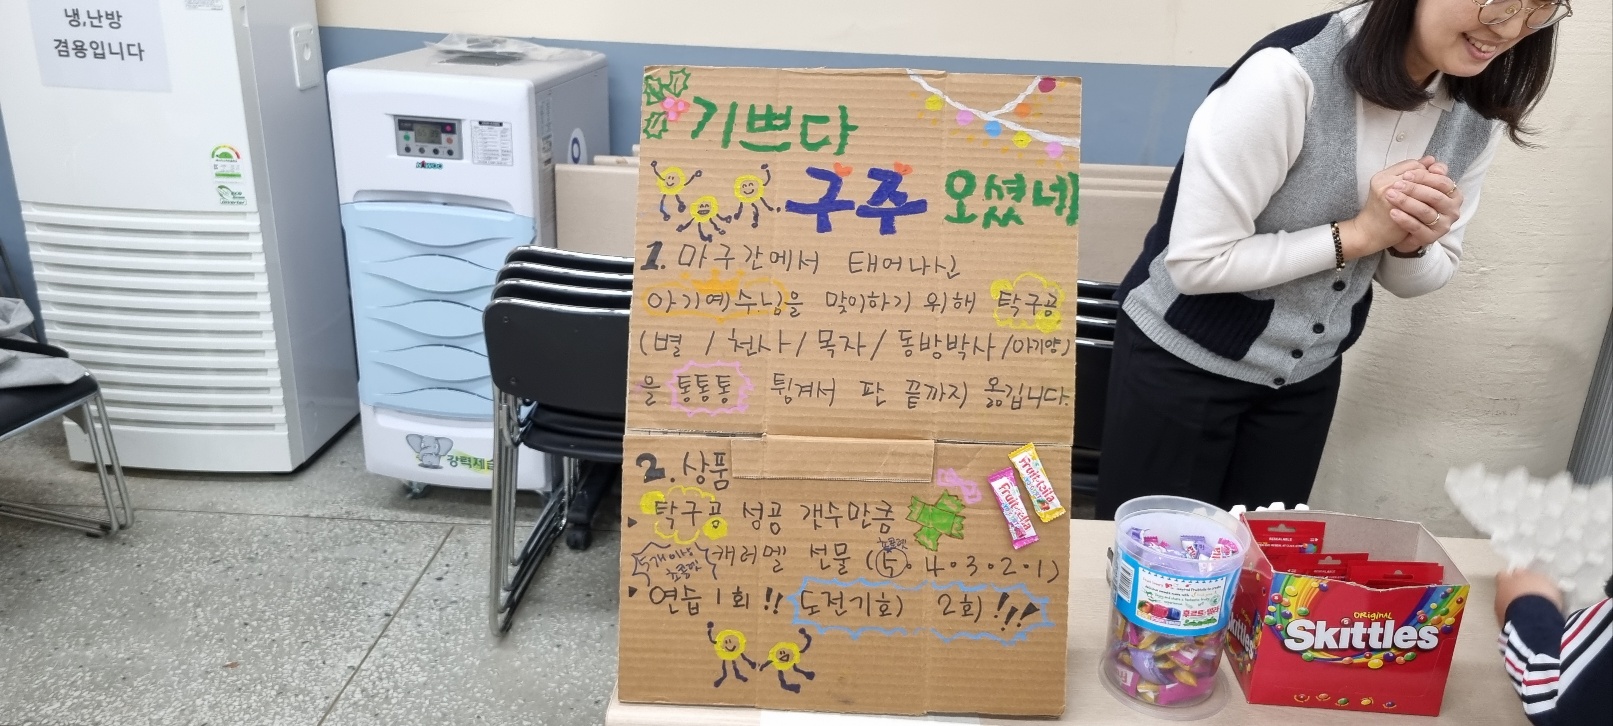 냉,난방
겸용입니다
강력제습
기쁘다
구주 오셨네
1. 마구간에서 태어나신
아기예수님을 맞이하기 위해 탁구공
(별 / 천사 / 목자 / 동방박사 / 아기양)
을 통통통 튕겨서 판 끝까지 옮깁니다.
2. 상품
탁구공 성공 갯수만큼
초콜렛
캐러멜 선물 (5·4·3·2·1)
5개 이상
초콜렛
연습 1회!! 도전기회 2회!!!
Fruittella
Fruittella
ORIGINAL
Skittles